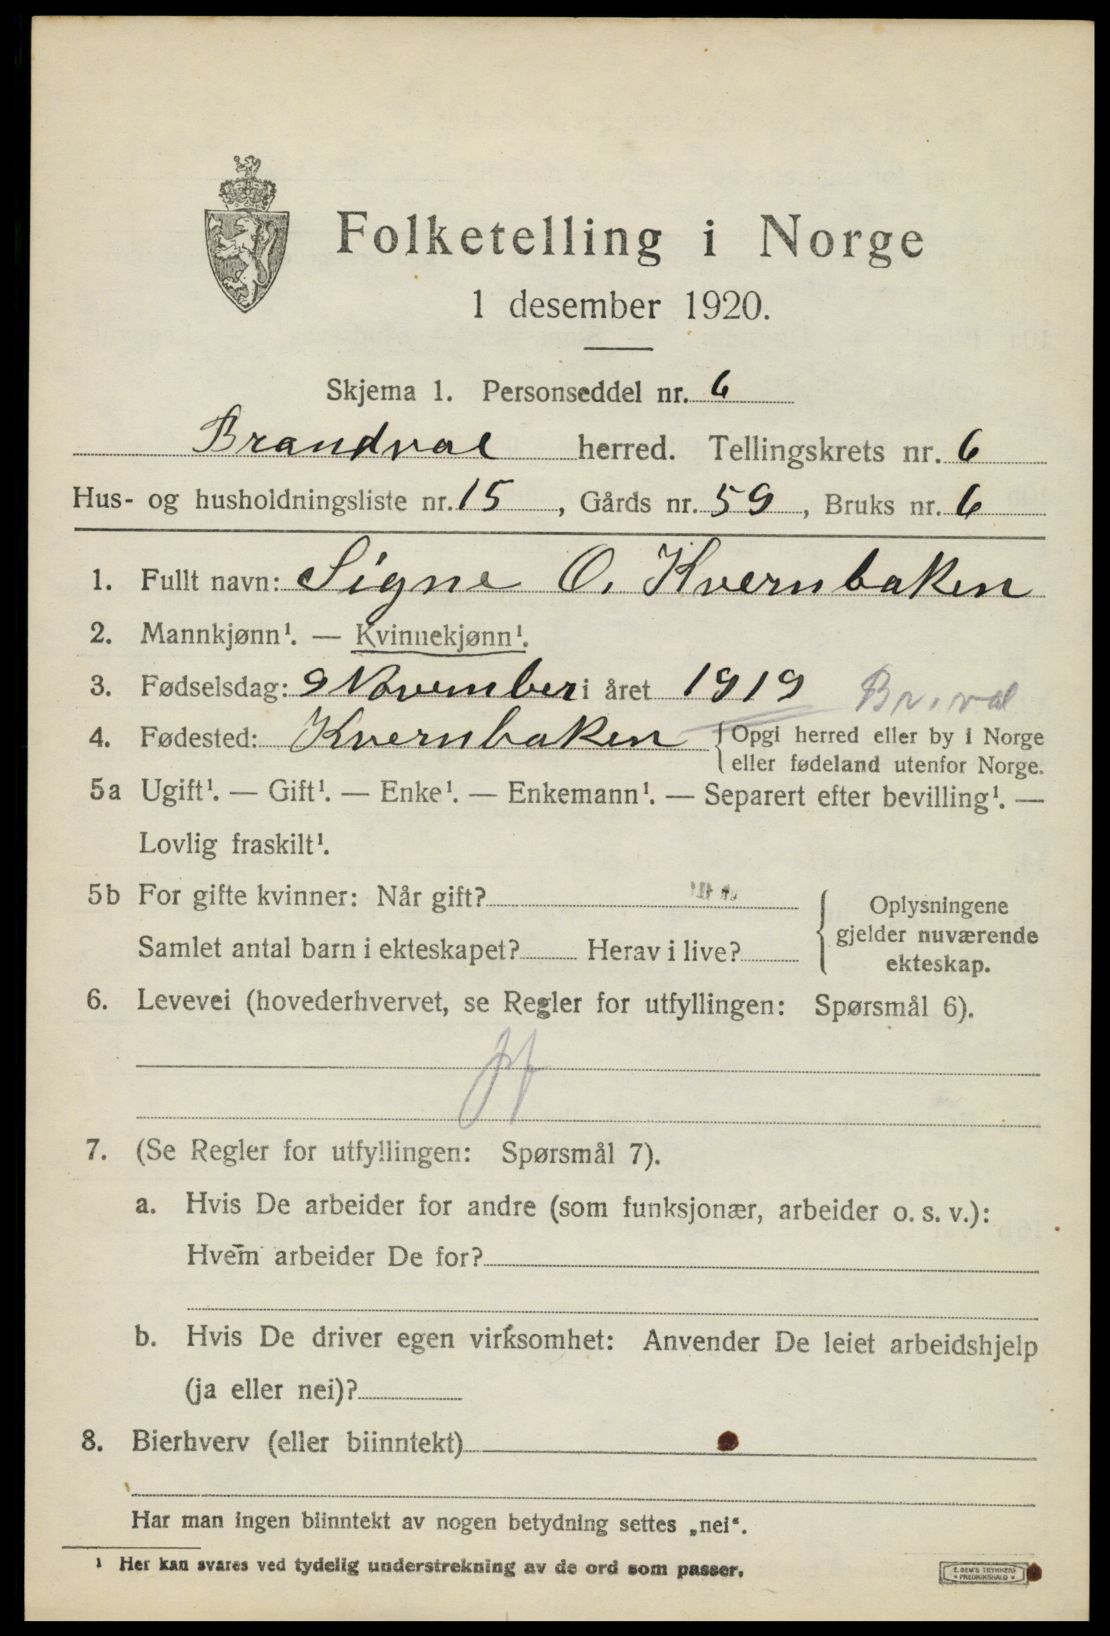 Folketelling i Norge
1 desember 1920.
Skjema 1. Personseddel nr. 6
Brandval herred. Tellingskrets nr. 6
Hus- og husholdningsliste nr. 15, Gårds nr. 59, Bruks nr. 6
1. Fullt navn: Signe O. Kvernbaken
2. Mannkjønn¹. — Kvinnekjønn¹.
3. Fødselsdag: 9 November i året 1919 Br.val
4. Fødested: Kvernbaken { Opgi herred eller by i Norge
eller fødeland utenfor Norge.
5a Ugift¹. — Gift¹. — Enke¹. — Enkemann¹. — Separert efter bevilling¹. —
Lovlig fraskilt¹.
5b For gifte kvinner: Når gift?
Samlet antal barn i ekteskapet? Herav i live?
{ Oplysningene
gjelder nuværende
ekteskap.
6. Levevei (hovederhvervet, se Regler for utfyllingen: Spørsmål 6).
7. (Se Regler for utfyllingen: Spørsmål 7).
a. Hvis De arbeider for andre (som funksjonær, arbeider o. s. v.):
Hvem arbeider De for?
b. Hvis De driver egen virksomhet: Anvender De leiet arbeidshjelp
(ja eller nei)?
8. Bierhverv (eller biinntekt)
Har man ingen biinntekt av nogen betydning settes „nei“.
¹ Her kan svares ved tydelig understrekning av de ord som passer.
E. SEM'S TRYKKERI
FREDRIKSHALD